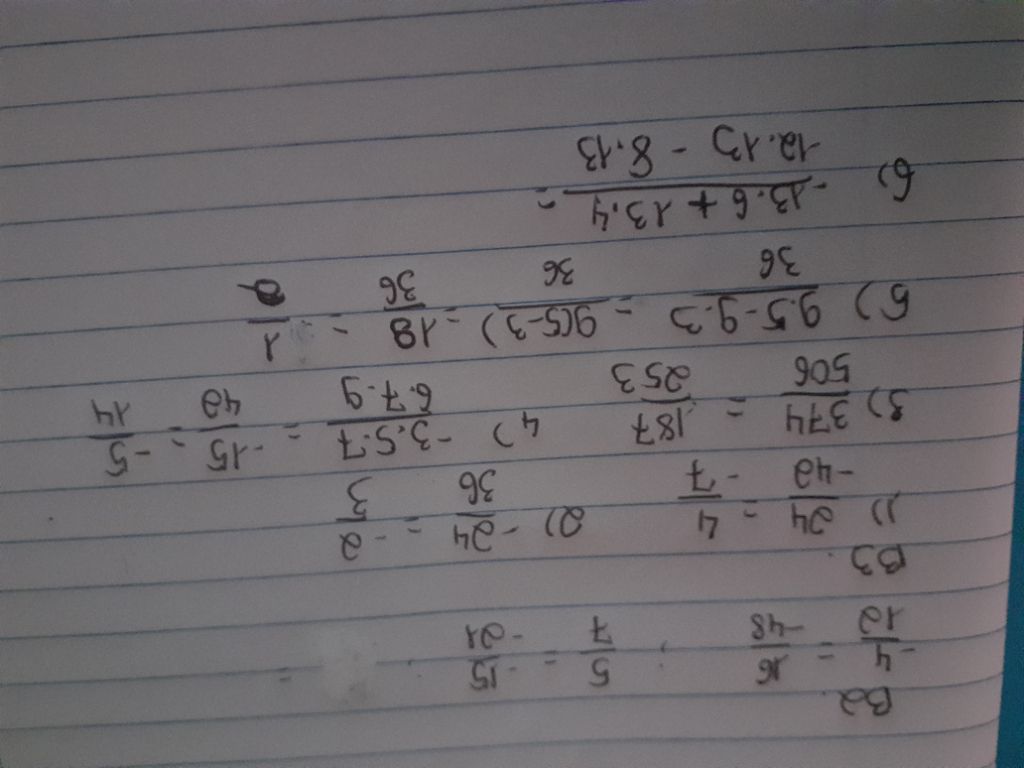 B2.
-4/12 = 16/-48 ; 5/7 = -15/-21 . =
B3.
1) 24/-42 = 4/-7 2) -24/36 = -2/3
3) 374/506 = 187/253 4) -3.5.7/6.7.9 = -15/42 = -5/14
5) 9.5-9.3/36 = 9(5-3)/36 = 18/36 = 1/2
6) -13.6 + 13.4/-12.13 - 8.13 =